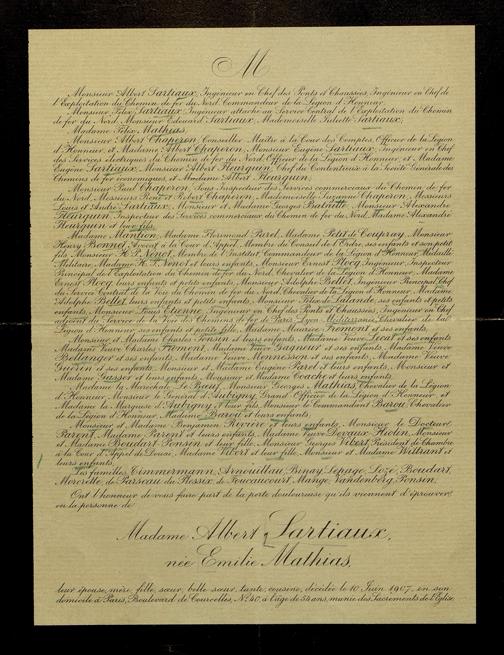 M
Monsieur Albert Sartiaux, Ingénieur en Chef des Ponts et Chaussées, Ingénieur en Chef de
l'Exploitation du Chemin de fer du Nord, Commandeur de la Légion d'Honneur,
Monsieur Félix Sartiaux, Ingénieur attaché au Service Central de l'Exploitation du Chemin
de fer du Nord, Monsieur Edouard Sartiaux, Mademoiselle Juliette Sartiaux,
Madame Félix Mathias,
Monsieur Albert Chaperon, Conseiller Maître à la Cour des Comptes, Officier de la Légion
d'Honneur, et Madame Albert Chaperon, Monsieur Eugène Sartiaux, Ingénieur en Chef
des Services électriques du Chemin de fer du Nord, Officier de la Légion d'Honneur, et Madame
Eugène Sartiaux, Monsieur Albert Heurguin, Chef du Contentieux à la Société Générale des
Chemins de fer économiques, et Madame Albert Heurguin,
Monsieur Paul Chaperon, Sous Inspecteur des Services commerciaux du Chemin de fer
du Nord, Messieurs et Robert Chaperon, Mademoiselle Suzanne Chaperon, Messieurs
Louis et André Sartiaux, Monsieur et Madame Georges Monsieur Alexandre
Heurguin, Inspecteur des Services commerciaux du Chemin de fer du Nord, Madame Alexandre
Heurguin et leur fils,
Madame Mantion, Madame Florimond Parel, Madame Petit de Coupray, Monsieur
Henry Bonnet, Avocat à la Cour d'Appel, Membre du Conseil de l'Ordre, ses enfants et son petit
fils, Monsieur H. P. Nénot, Membre de l'Institut, Commandeur de la Légion d'Honneur, Médaille
Militaire, Madame H. P. Nénot et leurs enfants, Monsieur Ernest Flocq, Ingénieur, Inspecteur
Principal de l'Exploitation du Chemin de fer du Nord, Chevalier de la Légion d'Honneur, Madame
Ernest Flocq, leurs enfants et petits enfants, Monsieur Adolphe Bellet, Ingénieur Principal, Chef
du Service Central de la Voie du Chemin de fer du Nord, Chevalier de la Légion d'Honneur, Madame
Adolphe Bellet, leurs enfants et petits enfants, Monsieur Félix de Lalande, ses enfants et petits
enfants, Monsieur Louis Etienne, Ingénieur en Chef des Ponts et Chaussées, Ingénieur en Chef
adjoint du Service de la Voie des Chemins de fer de Paris Lyon Méditerranée, Chevalier de la
Légion d'Honneur, ses enfants et petite fille, Madame Maurice Fremont et ses enfants,
Monsieur et Madame Charles Ponsin et leurs enfants, Madame Veuve et ses enfants,
Madame Veuve Charles Fremont, Madame Veuve et ses enfants, Madame Veuve
Bellanger et ses enfants, Madame Veuve Mennesson et ses enfants, Madame Veuve
Guérin et ses enfants, Monsieur et Madame Eugène Parel et leurs enfants, Monsieur et
Madame Gasser et leurs enfants, Monsieur et Madame Coache et leurs enfants,
Madame la Maréchale Le Bœuf, Monsieur Georges Mathias, Chevalier de la Légion
d'Honneur, Monsieur le Général d'Aubigny, Grand Officier de la Légion d'Honneur, et
Madame la Marquise d'Aubigny et leur fils, Monsieur le Commandant Barou, Chevalier
de la Légion d'Honneur, Madame Barou et leurs enfants,
Monsieur et Madame Benjamin Rivière et leurs enfants, Monsieur le Docteur
Parent, Madame Parent et leurs enfants, Madame Veuve Monsieur
et Madame Boudart Ponsin et leur fille, Monsieur Georges Vibert, Président de Chambre
à la Cour d'Appel de Douai, Madame Vibert et leur fille, Monsieur et Madame Wiltrant et
leurs enfants,
Les familles Timmermann, Arnouillau, Binay, Lepage, Lozé, Boudart,
de Parseau du Plessix, de Foucaucourt, Mange, Vandenberg, Ponsin,
Ont l'honneur de vous faire part de la perte douloureuse qu'ils viennent d'éprouver
en la personne de
Madame Albert Sartiaux,
née Emilie Mathias,
leur épouse, mère, fille, sœur, belle-sœur, tante, cousine, décédée le 10 Juin 1907, en son
domicile à Paris, Boulevard de Courcelles, No. 40, à l'âge de 54 ans, munie des Sacrements de l'Eglise.